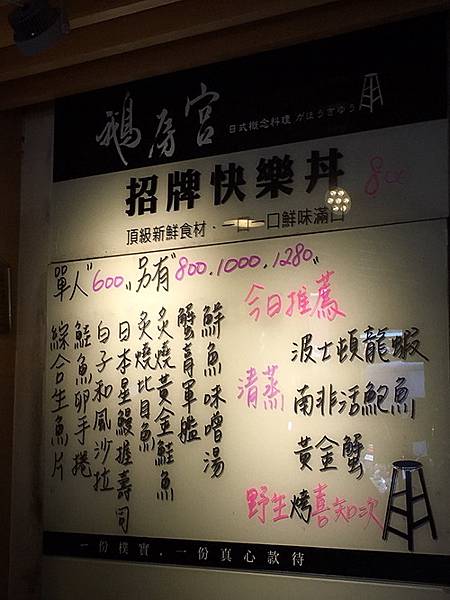 鵝房宮
日式概念料理 がほうきゅう
招牌快樂丼
頂級新鮮食材.一口一口鮮味滿口
單人"600" 另有"800.1000.1280"
鮮魚味噌湯
蟹膏軍艦
炙燒黃金鮭魚
炙燒比目魚
日本星鰻握壽司
白子和風沙拉
鮭魚卵手捲
綜合生魚片
今日推薦
清蒸
波士頓龍蝦
南非活鮑魚
黃金蟹
野生烤喜知次
一份樸實.一份真心款待